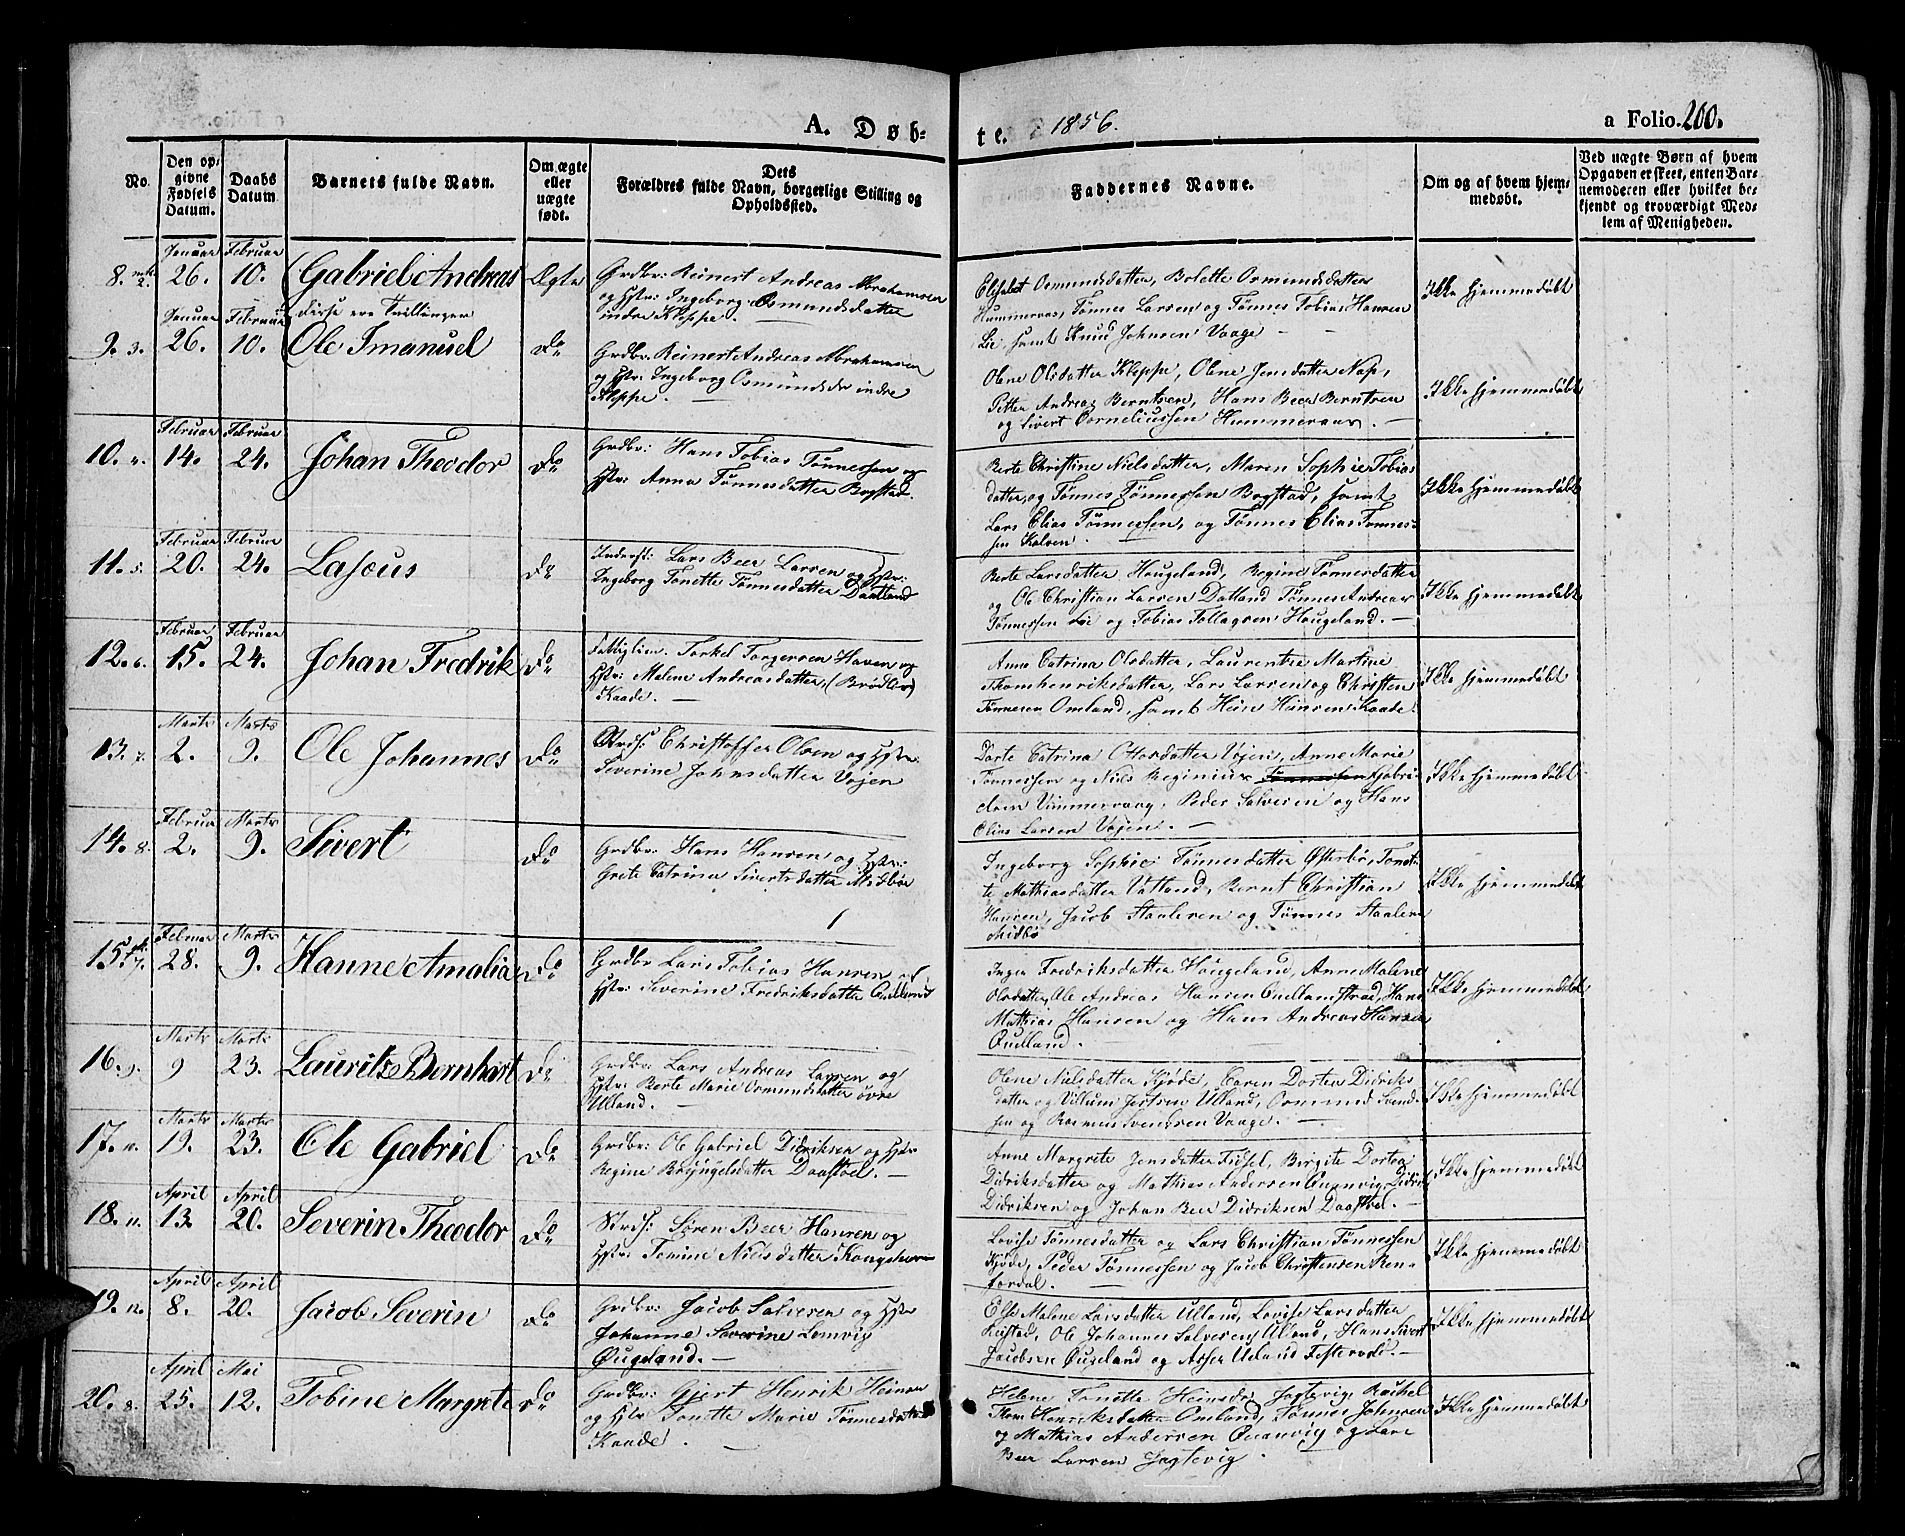 A. Døb-
te. 1856.
a Folio. 200.
No.
Den op-
givne
Fødsels
Datum.
Daabs
Datum
Barnets fulde Navn.
Om ægte
eller
uægte
født.
Dets
Forældres fulde Navn, borgerlige Stilling og
Opholdssted.
Faddernes Navne.
Om og af hvem hjem-
medøbt.
Ved uægte Børn af hvem
Opgaven er skeet, enten Bar-
nemoderen eller hvilket be-
kjendt og troværdigt Med-
lem af Menigheden.
Januar Februar
8. 2. 26. 10. Gabriel Andreas Ægte Grdbr: Reinert Andreas Abrahamsen
og Hstr: Ingeborg Osmundsdatter
indre Kleppe. —
Elisabet Osmundsdatter, Bolette Osmundsdatter
Hummeraas, Tønnes Larsen og Tønnes Tobias Hansen
Lie, samt Knud Johnsen Vaage —
Ikke hjemmedøbt
disse ere Tvillinger
Januar Februar
9. 3. 26. 10. Ole Imanuel Do Grdbr: Reinert Andreas Abrahamsen
og Hstr: Ingeborg Osmundsdr indre
Kleppe. —
Olene Olsdatter Kleppe, Olene Jensdatter Nap,
Petter Andreas Berntsen, Hans Beer Berntsen
og Sivert Corneliussen Hummeraas. —
Ikke hjemmedøbt
Februar Februar
10. 4. 14. 24. Johan Theodor Do Grdbr: Hans Tobias Tønnessen og
Hstr: Anna Tønnesdatter Bogstad.
Berte Christine Nielsdatter, Maren Sophie Tobias
datter, og Tønnes Tønnessen Bogstad, samt
Lars Elias Tønnessen, og Tønnes Elias Tønnes-
sen Kalven. —
Ikke hjemmedøbt
Februar Februar
11. 5. 20. 24. Lascus Do Inderst: Lars Beer Larsen og Hstr:
Ingeborg Tonette Tønnesdatter Daatland
Berte Larsdatter Haugeland, Regine Tønnesdatter
og Ole Christian Larsen Datland Tønnes Andreas
Tønnessen Lie og Tobias Tollagsen Haugeland. —
Ikke hjemmedøbt
Februar Februar
12. 6. 15. 24. Johan Fredrik Do Fattiglem. Torkel Torgersen Haven og
Hstr: Malene Andreasdatter,
Kaade. —
Anna Catrina Olsdatter, Laurentse Martine
Thomhenriksdatter, Lars Larsen og Christen
Tønnesen Omland, samt Hein Heinsen Kaade.
Ikke hjemmedøbt
Marts Marts
13. 7. 2. 9. Ole Johannes Do Strds: Christoffer Olsen og Hstr:
Severine Johnsdatter Vøjen
Dorte Catrina Ottosdatter Vøjen, Anne Marie
Tønnessen og Niels Reginius Gabri-
elsen Vimmersvaag, Peder Salvesen og Hans
Elias Larsen Vøjen. —
Ikke hjemmedøbt
Februar Marts
14. 8. 2. 9. Sivert Do Grdbr: Hans Hansen og Hstr:
Grete Catrina Sivertsdatter Midbøe
Ingeborg Sophie Tønnesdatter Østerbø, Tonet-
te Mathiasdatter Vatland, Bernt Christian
Hansen, Jacob Staalesen og Tønnes Staalesen
Midbø
Ikke hjemmedøbt
Februar Marts
15. 7. 28. 9. Hanne Amalia Do Grdbr Lars Tobias Hansen og
Hstr: Severine Fredriksdatter Qudland
Inger Fredriksdatter Haugeland, Anne Malene
Olsdatter, Ole Andreas Hansen Qudlandstrad, Hans
Mathias Hansen og Hans Andreas Hansen
Qudland. —
Ikke hjemmedøbt
Marts Marts
16. 9. 9 23. Lauritz Bernhart Do Grdbr: Lars Andreas Larsen og
Hstr: Berte Marie Osmundsdatter øvre
Ulland. —
Olene Nielsdatter Kjøde, Caren Dortea Didriks
datter og Villum Jertsen Ulland, Osmund Svend-
sen og Rasmus Svendsen Vaage. —
Ikke hjemmedøbt
Marts Marts
17. 10. 19. 23. Ole Gabriel Do Grdbr: Ole Gabriel Didriksen og Hstr
Regine Brynjelsdatter Daastøel. —
Anne Margrete Jensdatter Fidsel, Birgite Dortea
Didriksdatter og Mathias Andersen Quanvig, Didrik
Didriksen og Johan Beer Didriksen Daastøel. —
Ikke hjemmedøbt
April April
18. 11. 13. 20. Severin Theodor Do Strds: Søren Beer Hansen og
Hstr: Tomine Nielsdatter Kongshavn
Lovise Tønnesdatter og Lars Christian Tønnessen
Kjøde, Peder Tønnessen og Jacob Christensen Ren-
fordal. —
Ikke hjemmedøbt
April April
19. 12. 8. 20. Jacob Severin Do Grdbr: Jacob Salvesen og Hstr
Johanne Severine Lomvig
Øugeland. —
Else Malene Larsdatter Ulland, Lovise Larsdatter
Ristad, Ole Johannes Salvesen Ulland, Hans Sivert
Jacobsen Øugeland og Asser Ulland Festervold. —
Ikke hjemmedøbt
April Mai
20. 8. 25. 12. Tobine Margrete Do Grdbr: Gjert Henrik Heinsen
og Hstr Tonette Marie Tønnesdatter
Kaade. —
Helene Tonette Heinsdr Jagtevig, Rachel
Thom Henriksdatter Omland, Tønnes Johnsen
og Mathias Andersen Quanvig og Lars
Beer Larsen Jagtevig
Ikke hjemmedøbt